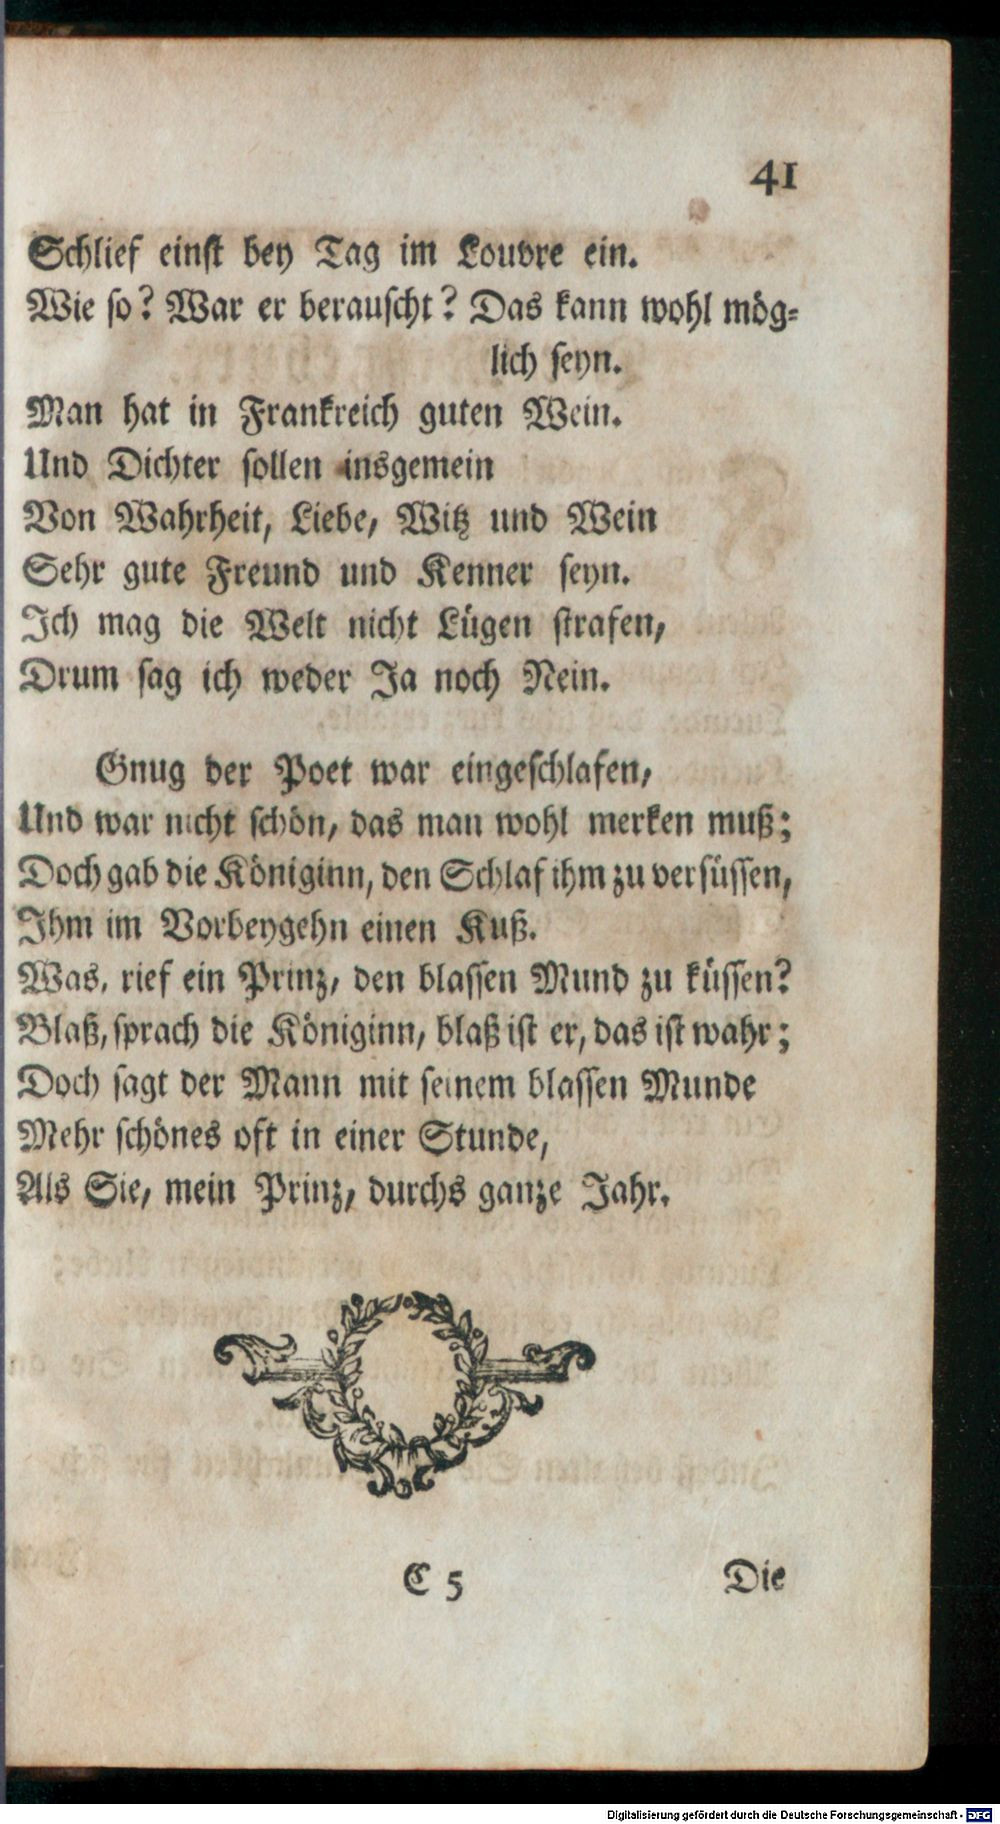 41
Schlief einst bey Tag im Louvre ein.
Wie so? War er berauscht? Das kann wohl mög-
lich seyn.
Man hat in Frankreich guten Wein.
Und Dichter sollen insgemein
Von Wahrheit, Liebe, Witz und Wein
Sehr gute Freund und Kenner seyn.
Ich mag die Welt nicht Lügen strafen,
Drum sag ich weder Ja noch Nein.
Gnug der Poet war eingeschlafen,
Und war nicht schön, das man wohl merken muß;
Doch gab die Königinn, den Schlaf ihm zu versüssen,
Ihm im Vorbeygehn einen Kuß.
Was, rief ein Prinz, den blassen Mund zu küssen?
Blaß, sprach die Königinn, blaß ist er, das ist wahr;
Doch sagt der Mann mit seinem blassen Munde
Mehr schönes oft in einer Stunde,
Als Sie, mein Prinz, durchs ganze Jahr.
C 5 Die
Digitalisierung gefördert durch die Deutsche Forschungsgemeinschaft - DFG